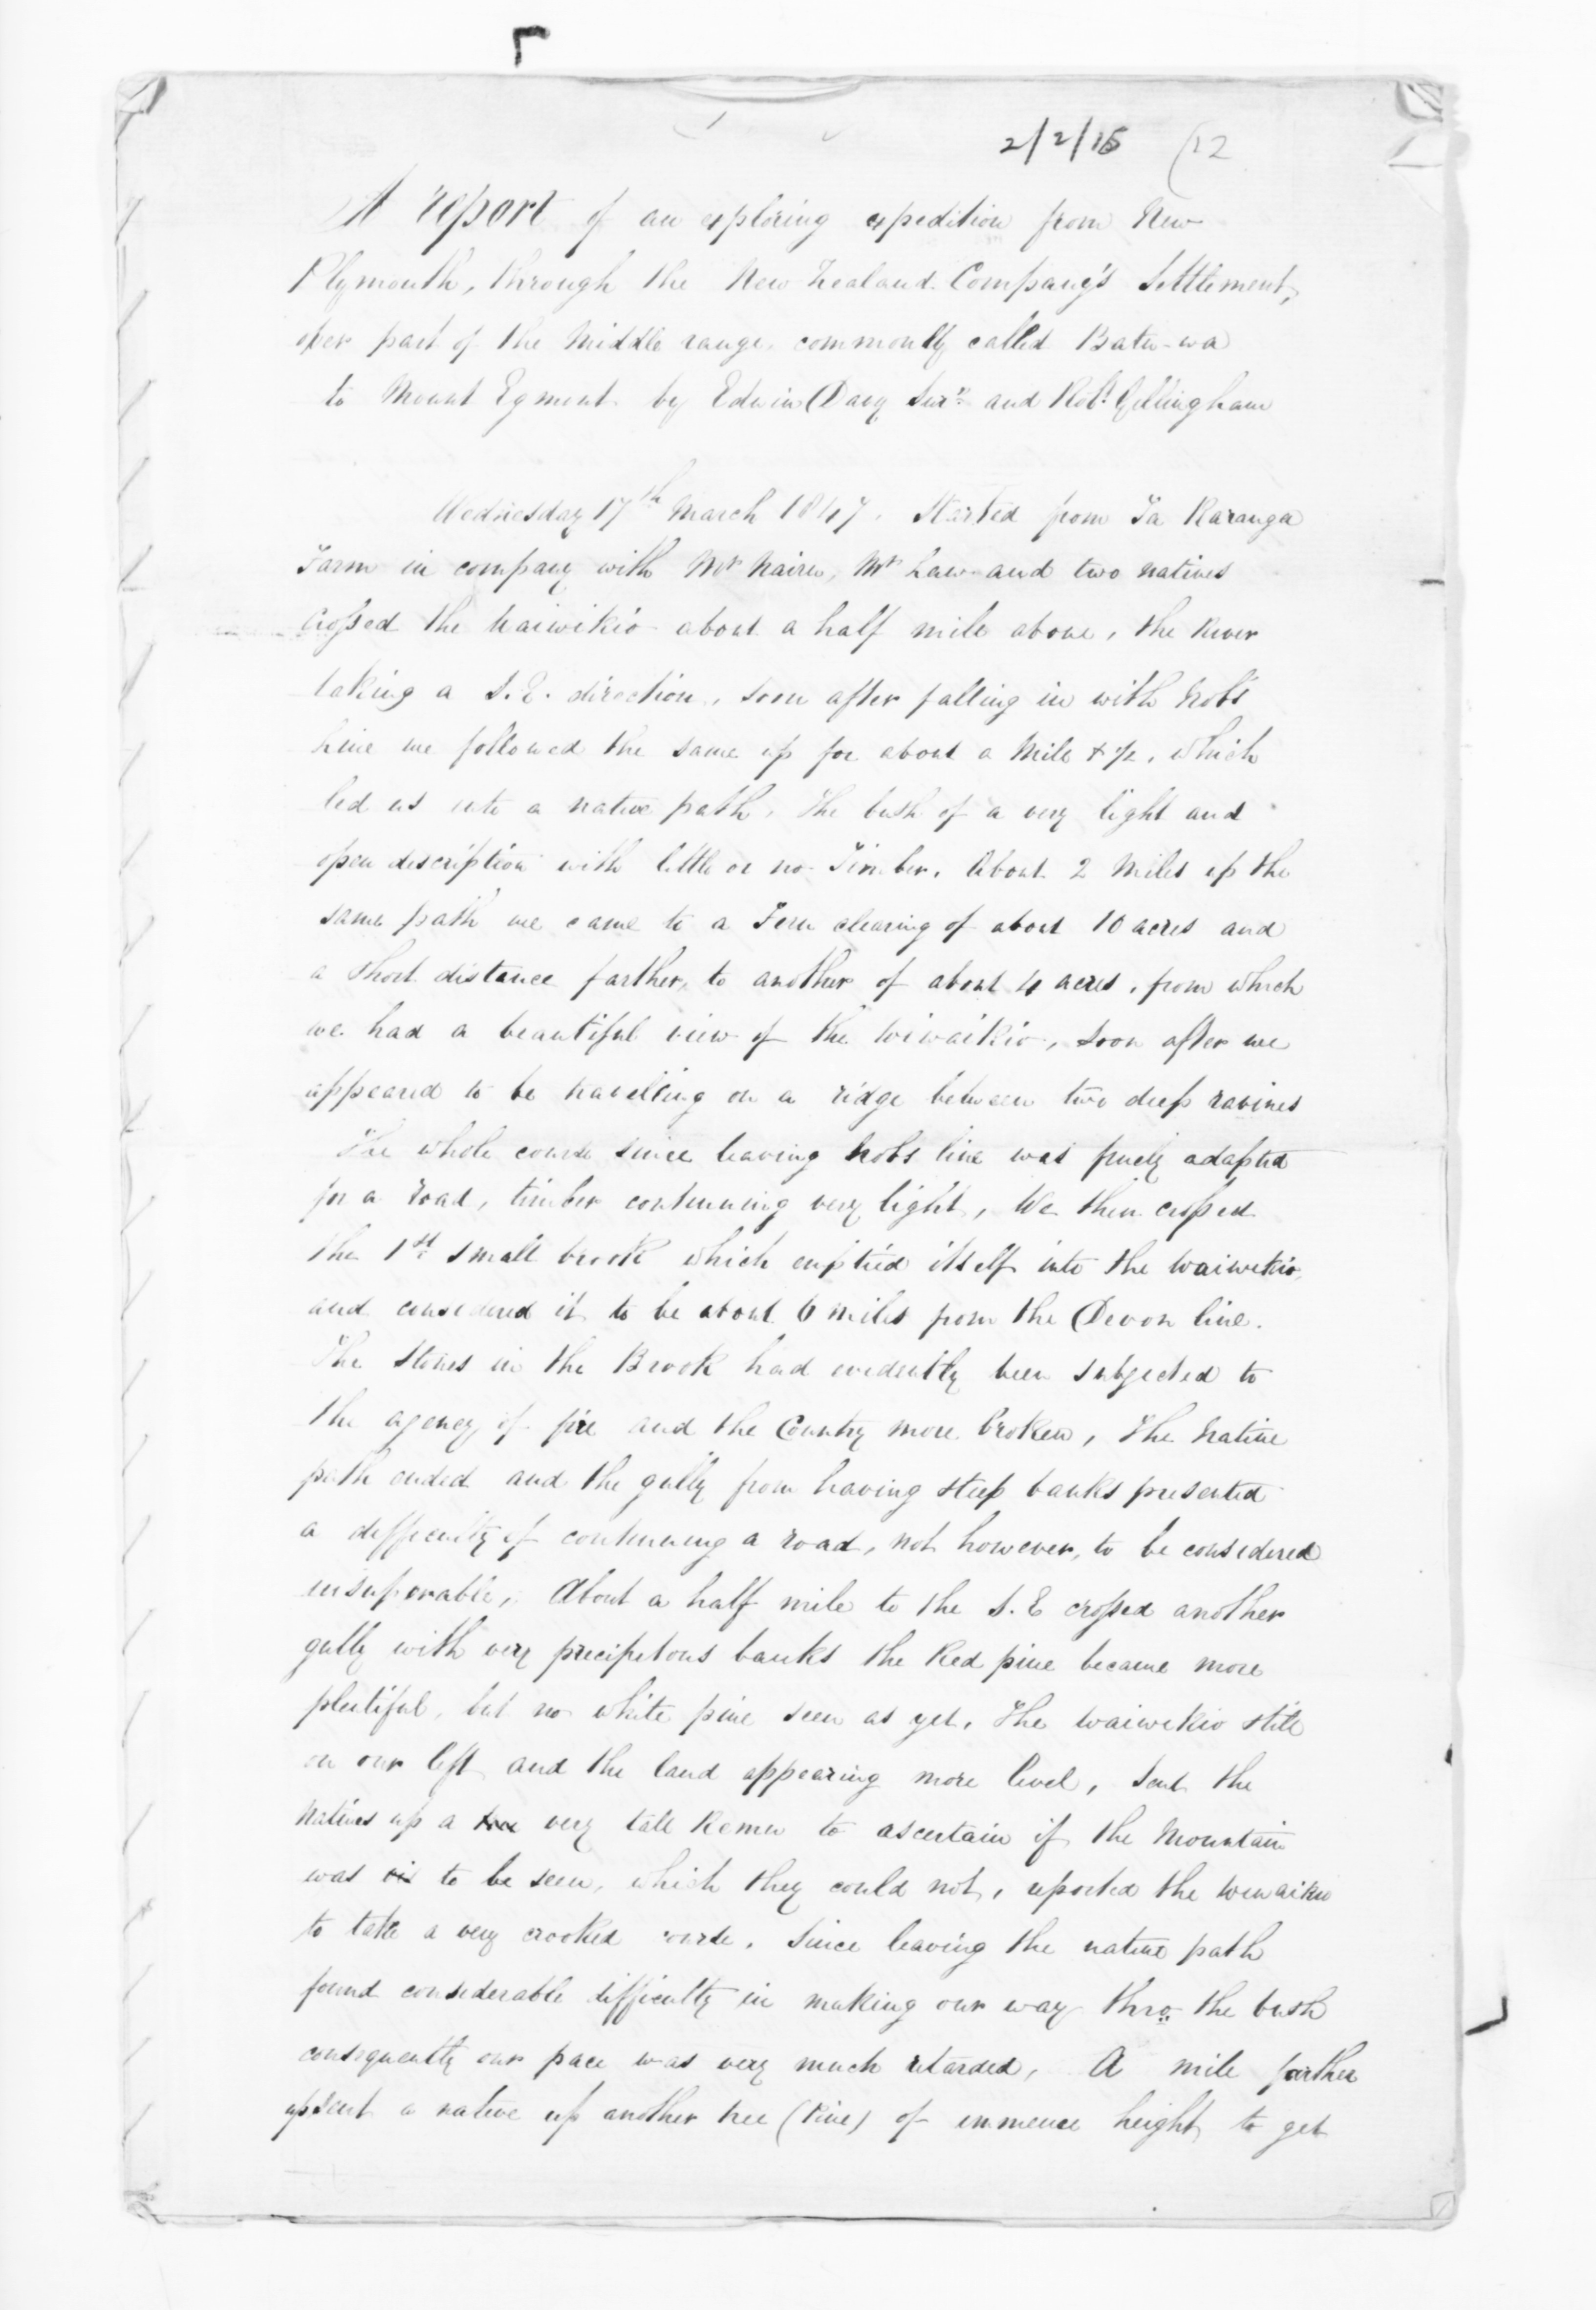 2/2/15 (12
A report of an exploring expedition from New
Plymouth, through the New Zealand Company's Settlement,
over part of the Middle range commonly called
to Mount Egmont by Edwin Davy Senr and Robt Gillingham
Wednesday 17th March 1847. Started from Ta Karanga
Farm in company with Mr Nairn, Mr Law and two natives
crossed the about a half mile above, the River
taking a S.E. direction, soon after falling in with Nobs
Line we followed the same up for about a Mile & ½, which
led us into a native path, the bush of a very light and
open description with little or no Timber. About 2 Miles up the
same path we came to a Fern clearing of about 10 acres and
a short distance farther, to another of about 4 acres, from which
we had a beautiful view of the Wiwaikio, soon after we
appeared to be travelling on a ridge between two deep ravines
The whole course since leaving Nobs line was finely adapted
for a road, timber continuing very light, We then crossed
the 1st small brook which emptied itself into the Waiwekio,
and considered it to be about 6 miles from the Devon line.
The Stones in the Brook had evidently been subjected to
the agency of fire and the Country more broken, the Native
path ended and the gully from having steep banks presented
a difficulty of continuing a road, not however, to be considered
insuperable, About a half mile to the S.E crossed another
gully with very precipetous banks the Red pine became more
plentiful, but no white pine seen as yet. The Waiwekio still
on our left and the land appearing more level, sent the
Natives up a tree very tall Remu to ascertain if the Mountain
was vis to be seen, which they could not, reported the Wiwaikio
to take a very crooked course. Since leaving the native path
found considerable difficulty in making our way thro the bush
consequently our pace was very much retarded, A mile farther
up sent a native up another tree (Pine) of immence height to get